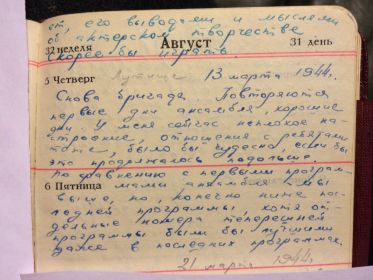 ет, его выводами и мыслями
об актерском творчестве
Скорее бы играть
32 неделя Август 31 день
5 Четверг 13 марта 1944.
Снова бригада. Повторяются
первые дни ансамбля, хорошие
дни. У меня сейчас неплохое на-
строение, отношения с ребятами
тоже, было бы чудесно, если бы
это продолжалось подольше.
По сравнению с первыми програм-
6 Пятница мами ансамбля мы
выше, но, конечно ниже пос-
ледней программы хотя от-
дельные номера теперешней
программы были бы лучшими
даже в последних программах.
21 марта 1944.